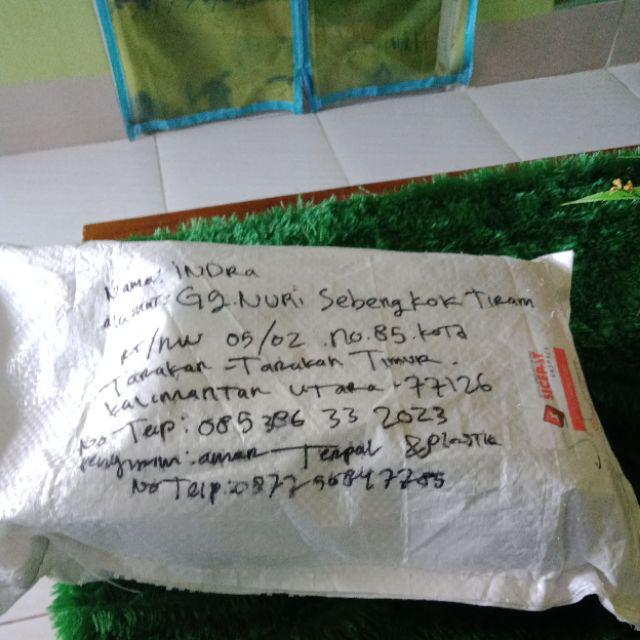 Nama: INDRA
alamat: G2. NURI Sebengkok Tiram
RT/RW 05/02 No.85. kota
Tarakan - Tarakan Timur.
Kalimantan Utara - 77126
No Telp: 085 396 33 2023
Pengirim: aman Terpal & Plastik
No Telp: 0877 5684 7785
SICEPAT